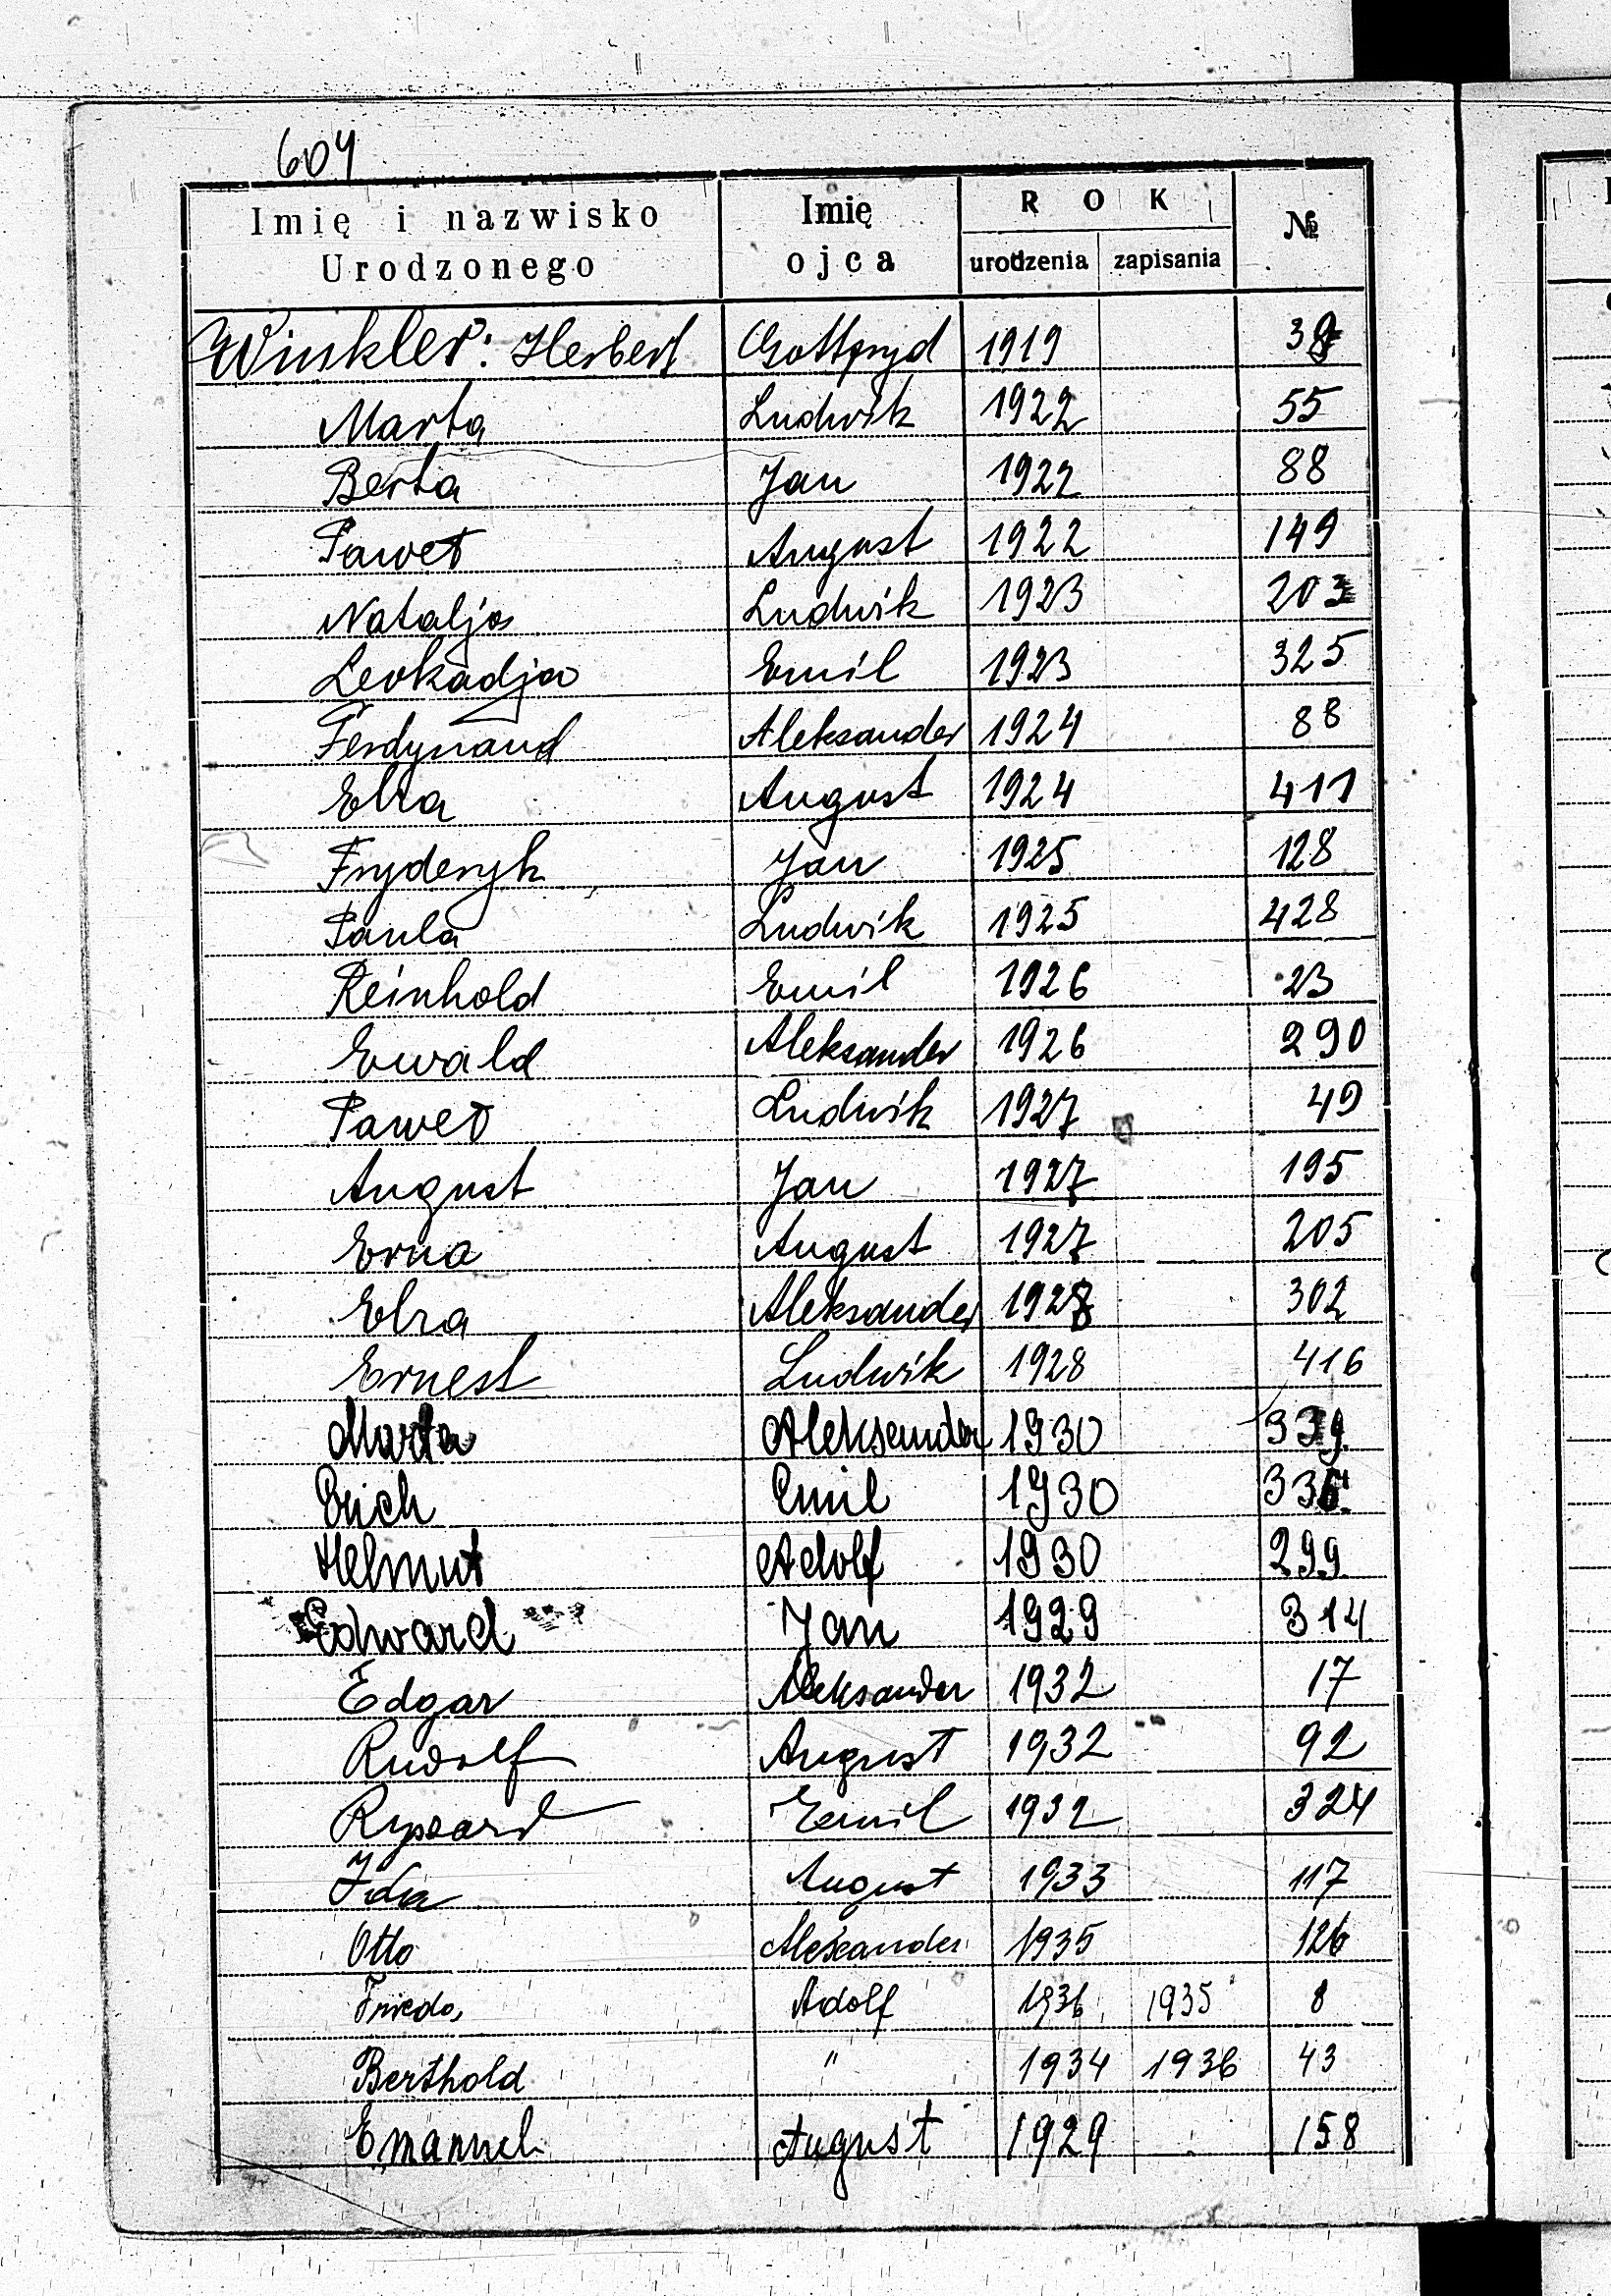 604
Imię i nazwisko Urodzonego Imię ojca ROK urodzenia zapisania №
Winkler: Herbert Gottfryd 1919 38
Marta Ludwik 1922 55
Berta Jan 1922 88
Paweł August 1922 149
Natalja Ludwik 1923 203
Leokadja Emil 1923 325
Ferdynand Aleksander 1924 88
Elza August 1924 411
Fryderyk Jan 1925 128
Paula Ludwik 1925 428
Reinhold Emil 1926 23
Ewald Aleksander 1926 290
Paweł Ludwik 1927 49
August Jan 1927 195
Erna August 1927 205
Elza Aleksander 1928 302
Ernest Ludwik 1928 416
Marta Aleksander 1930 339
Erich Emil 1930
Helmut Adolf 1930 299
Edward Jan 1929 314
Edgar Aleksander 1932 17
Rudolf August 1932 92
Ryszard Emil 1932 324
Ida August 1933 117
Otto Aleksander 1935 126
Frieda Adolf 1936 1935 8
Berthold " 1934 1936 43
Emanuel August 1929 158